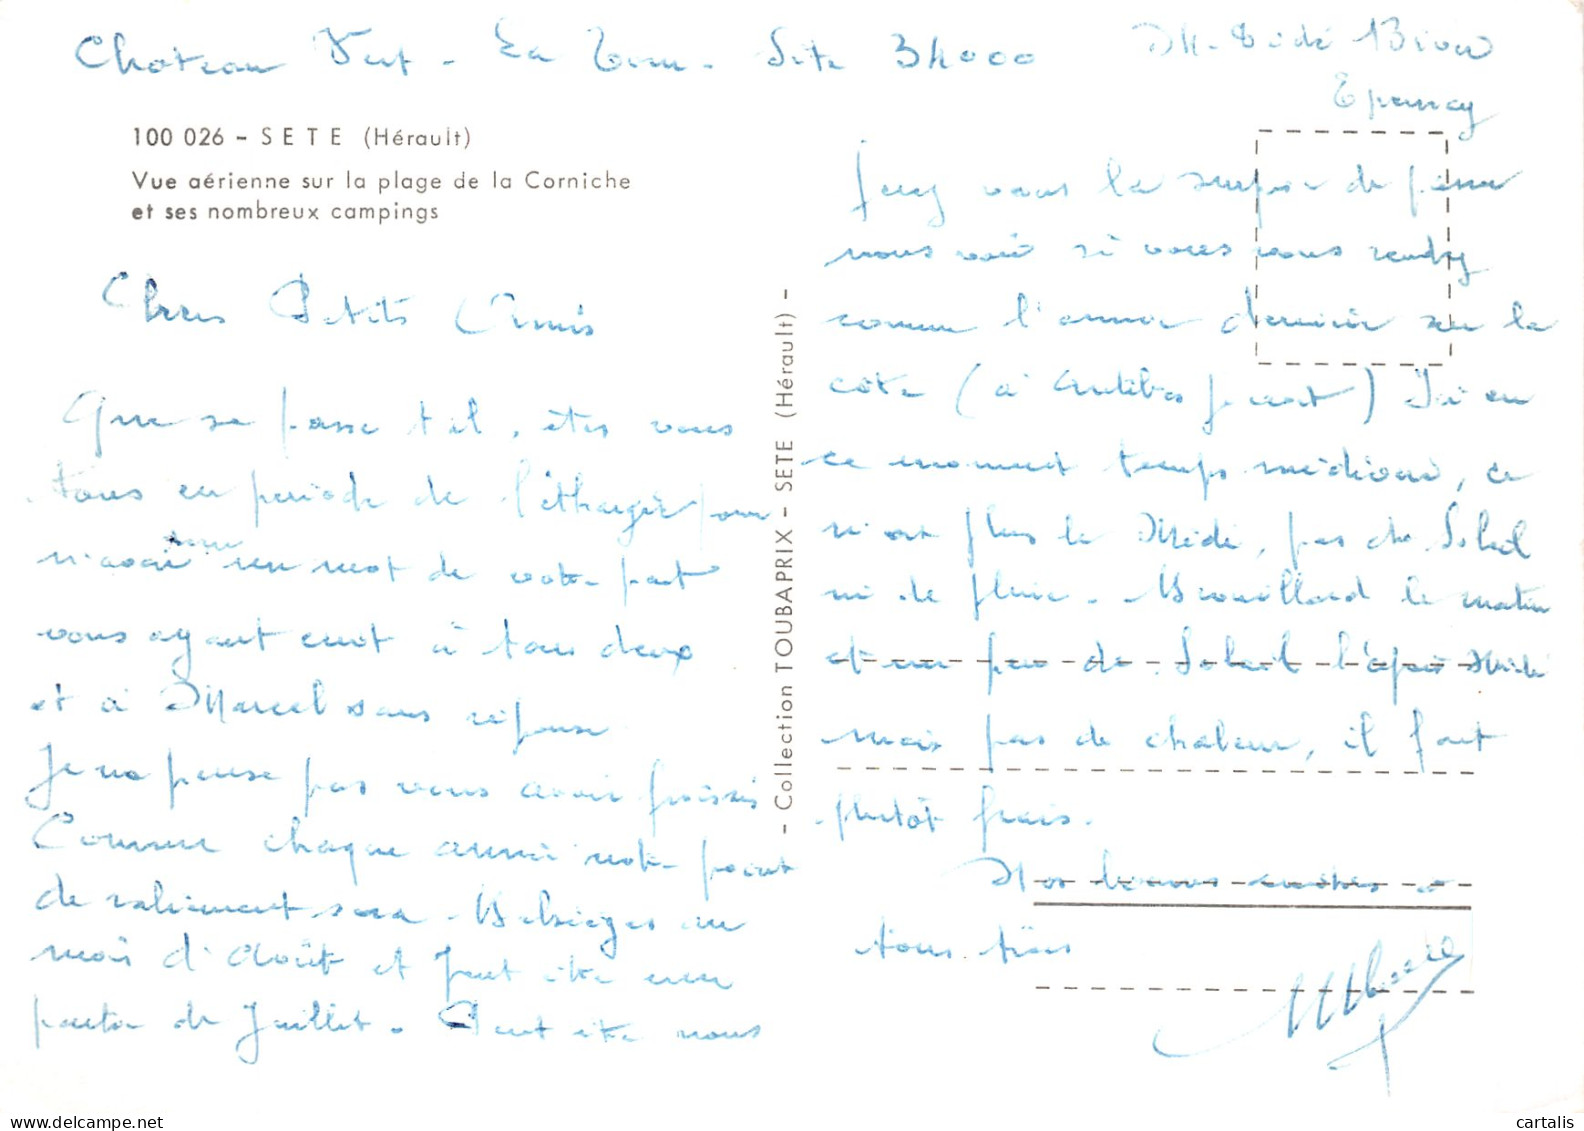 Chateau Vert - La - Sète 34000
Epernay
100 026 - SETE (Hérault)
Vue aérienne sur la plage de la Corniche
et ses nombreux campings
Chers Petits Amis
Que se passe t il, êtes vous
tous en période de pour
n'avoir un mot de votre part
vous ayant écrit à tous deux
et à Marcel sans réponse
Je ne pense pas vous avoir froissés
Comme chaque année notre point
de raliement sera au
mois d'Août et peut être une
partie de Juillet. Peut être nous
- Collection TOUBAPRIX - SETE (Hérault) -
ferez vous la surprise de venir
nous voir si vous vous rendez
comme l'année dernière sur la
côte (à Antibes je crois) Ici en
ce moment temps médiocre, ce
n'est plus le Midi, pas de Soleil
ni de pluie. Brouillard le matin
et un peu de Soleil l'après Midi
mais pas de chaleur, il fait
plutôt frais.
Nos bonnes amitiés à
tous trois